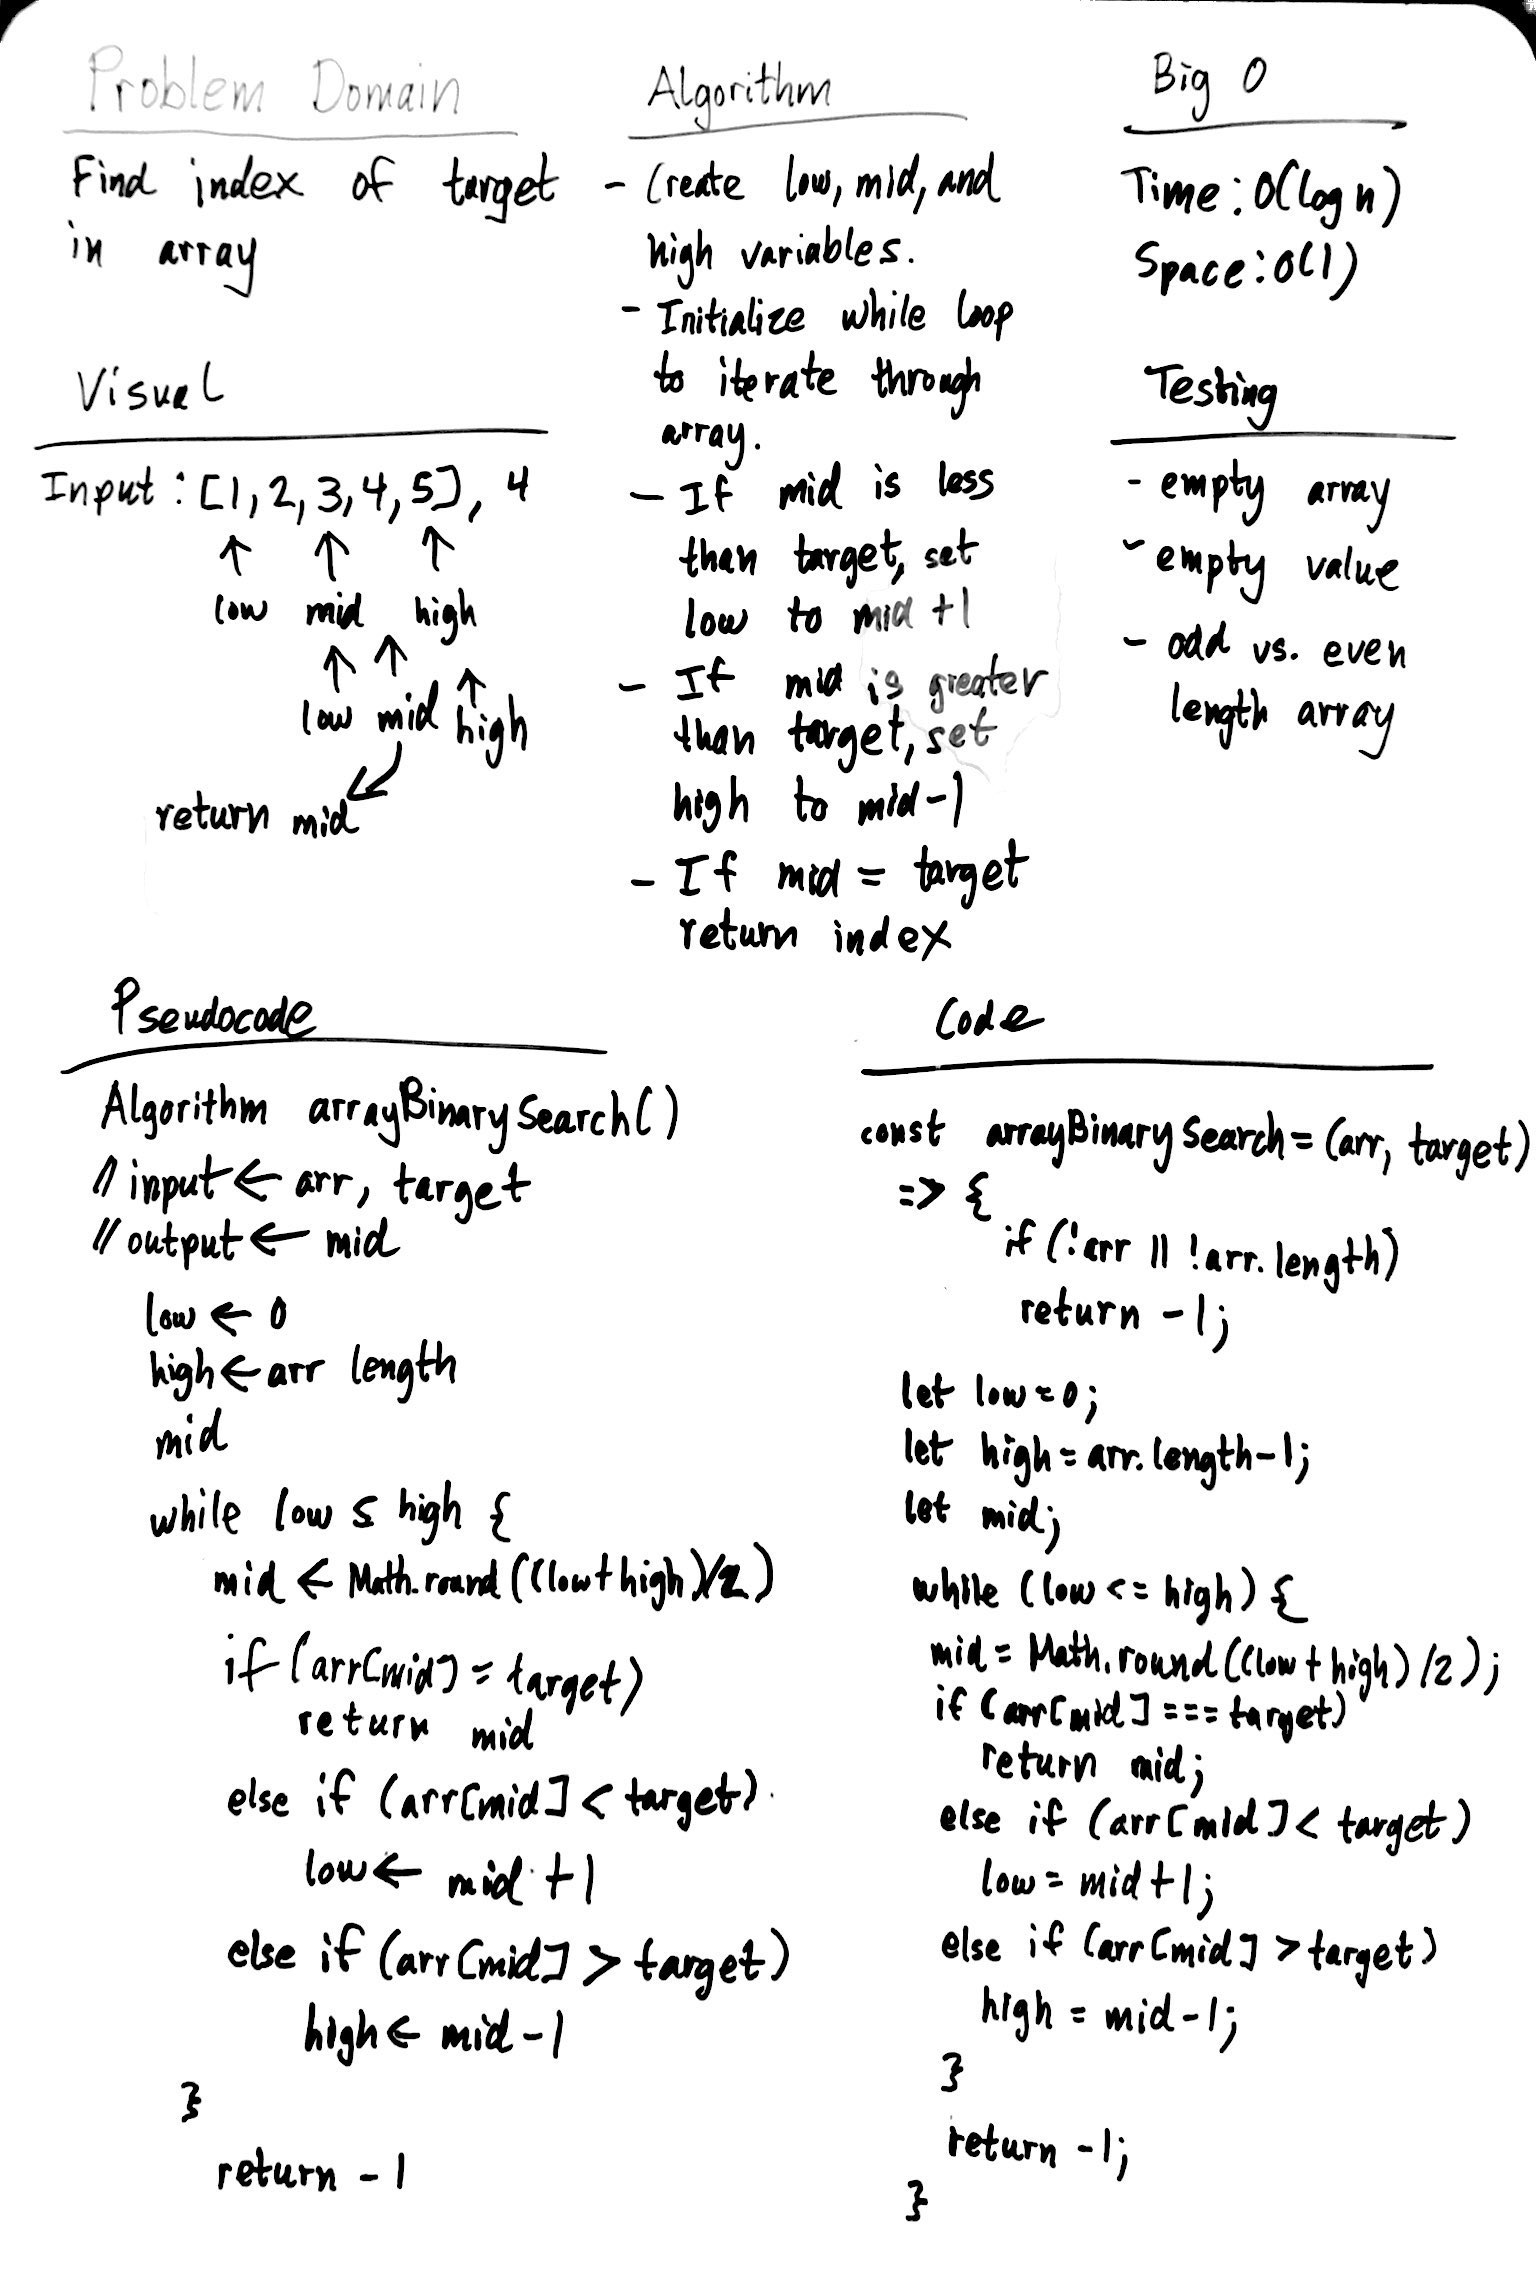 Problem Domain
Find index of target
in array
Visual
Input: [1, 2, 3, 4, 5], 4
↑ ↑ ↑
low mid high
↑ ↑ ↑
low mid high
↙
return mid
Algorithm
- Create low, mid, and
high variables.
- Initialize while loop
to iterate through
array.
- If mid is less
than target, set
low to mid +1
- If mid is greater
than target, set
high to mid-1
- If mid = target
return index
Big O
Time: O(log n)
Space: O(1)
Testing
- empty array
- empty value
- odd vs. even
length array
Pseudocode
Algorithm arrayBinarySearch()
// input ← arr, target
// output ← mid
low ← 0
high ← arr length
mid
while low ≤ high {
mid ← Math.round((low+high)/2)
if (arr[mid] = target)
return mid
else if (arr[mid] < target)
low ← mid +1
else if (arr[mid] > target)
high ← mid -1
}
return -1
Code
const arrayBinarySearch = (arr, target)
=> {
if (!arr || !arr.length)
return -1;
let low = 0;
let high = arr.length-1;
let mid;
while (low <= high) {
mid = Math.round((low + high) /2);
if (arr[mid] === target)
return mid;
else if (arr[mid] < target)
low = mid+1;
else if (arr[mid] > target)
high = mid-1;
}
return -1;
}